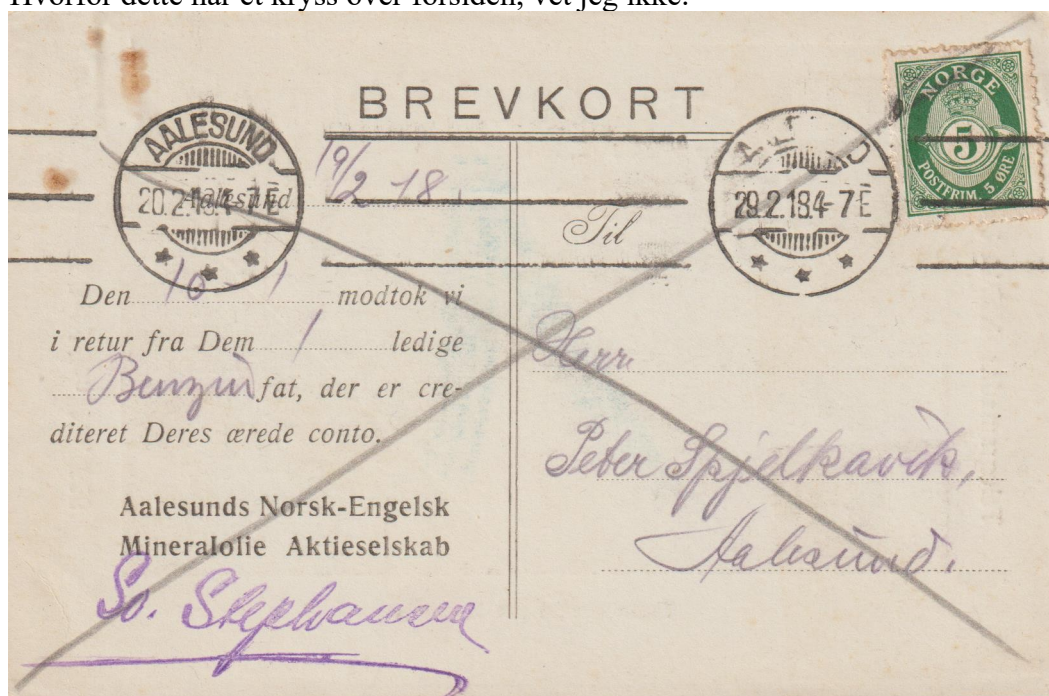 Hvorfor dette har et kryss over forsiden, vet jeg ikke.
BREVKORT
NORGE
5
POSTFRIM. 5 ØRE
AALESUND
20.2.18.4-7E
29.2.18.4-7E
Aalesund 19/2-18
Til
Den 10-1 modtok vi
i retur fra Dem 1 ledige
Benzin fat, der er cre-
diteret Deres ærede conto.
Aalesunds Norsk-Engelsk
Mineralolie Aktieselskab
So. Stephansen
Herr
Peter Spjelkavik,
Aalesund.